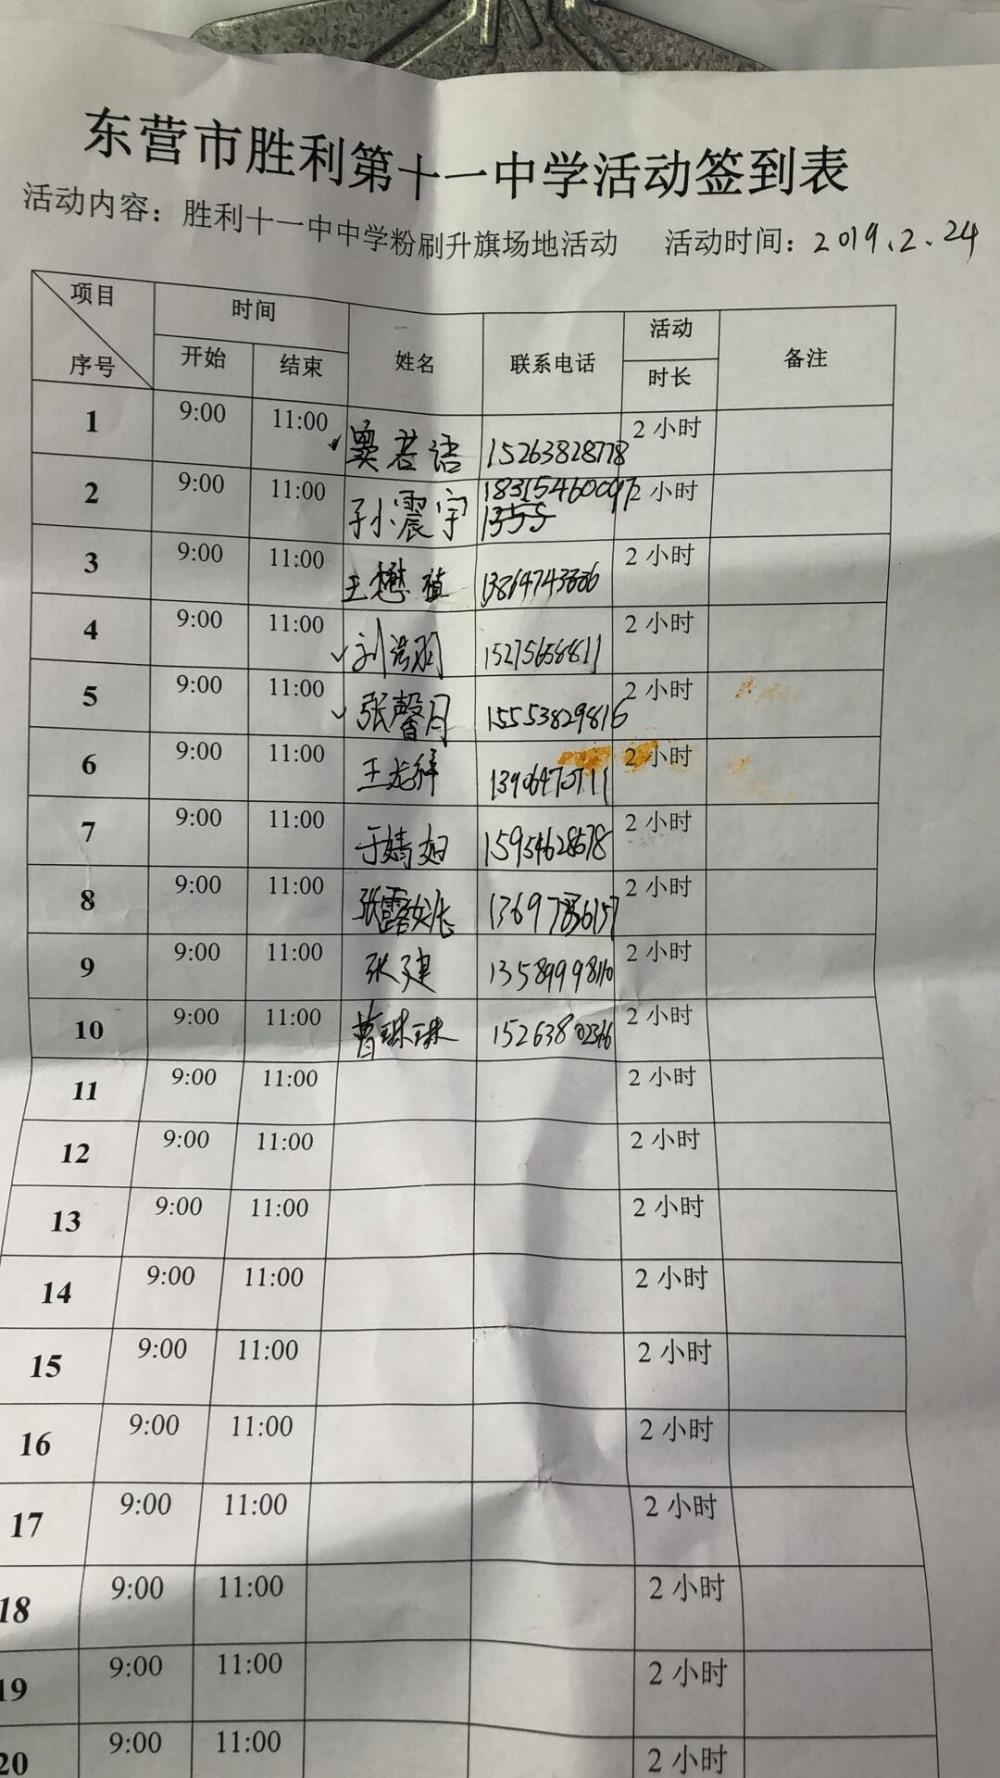 东营市胜利第十一中学活动签到表
活动内容：胜利十一中中学粉刷升旗场地活动 活动时间：2019.2.24
项目 时间 活动
序号 开始 结束 姓名 联系电话 时长 备注
1 9:00 11:00 窦若语 15263828778 2小时
2 9:00 11:00 孙震宇 18315460097 2小时
1355
3 9:00 11:00 王懋植 2小时
4 9:00 11:00 刘浩羽 15275658811 2小时
5 9:00 11:00 张馨月 15553829816 2小时
6 9:00 11:00 王龙 13906470711 2小时
7 9:00 11:00 于婧 15954628578 2小时
8 9:00 11:00 张露 2小时
9 9:00 11:00 张建 13589998110 2小时
10 9:00 11:00 曹琳琳 15263802366 2小时
11 9:00 11:00 2小时
12 9:00 11:00 2小时
13 9:00 11:00 2小时
14 9:00 11:00 2小时
15 9:00 11:00 2小时
16 9:00 11:00 2小时
17 9:00 11:00 2小时
18 9:00 11:00 2小时
19 9:00 11:00 2小时
20 9:00 11:00 2小时